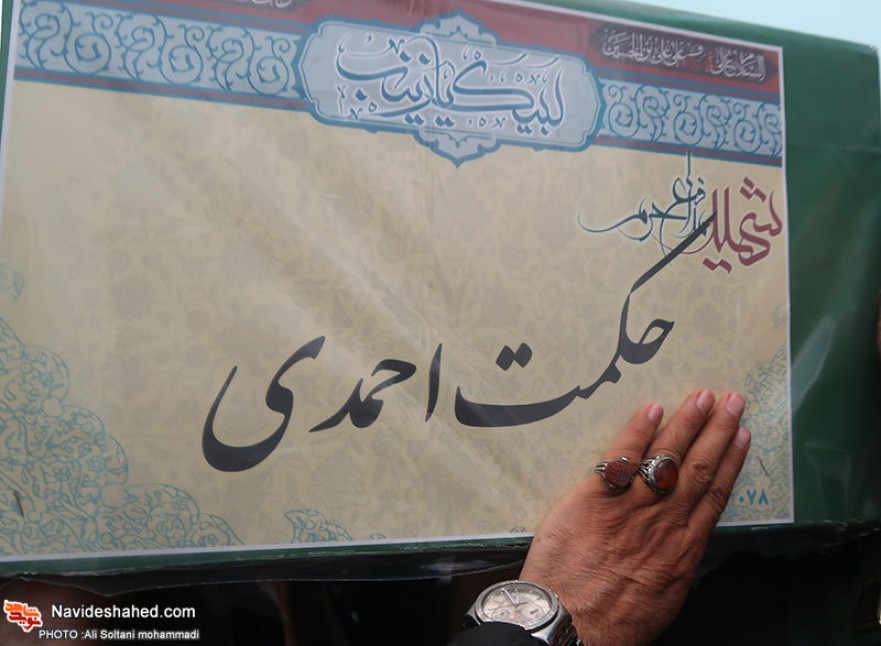 السلام علی الحسین و علی علی بن الحسین
لبیک یا زینب
شهید مدافع حرم
حکمت احمدی
۰۷۸
Navideshahed.com
PHOTO :Ali Soltani mohammadi